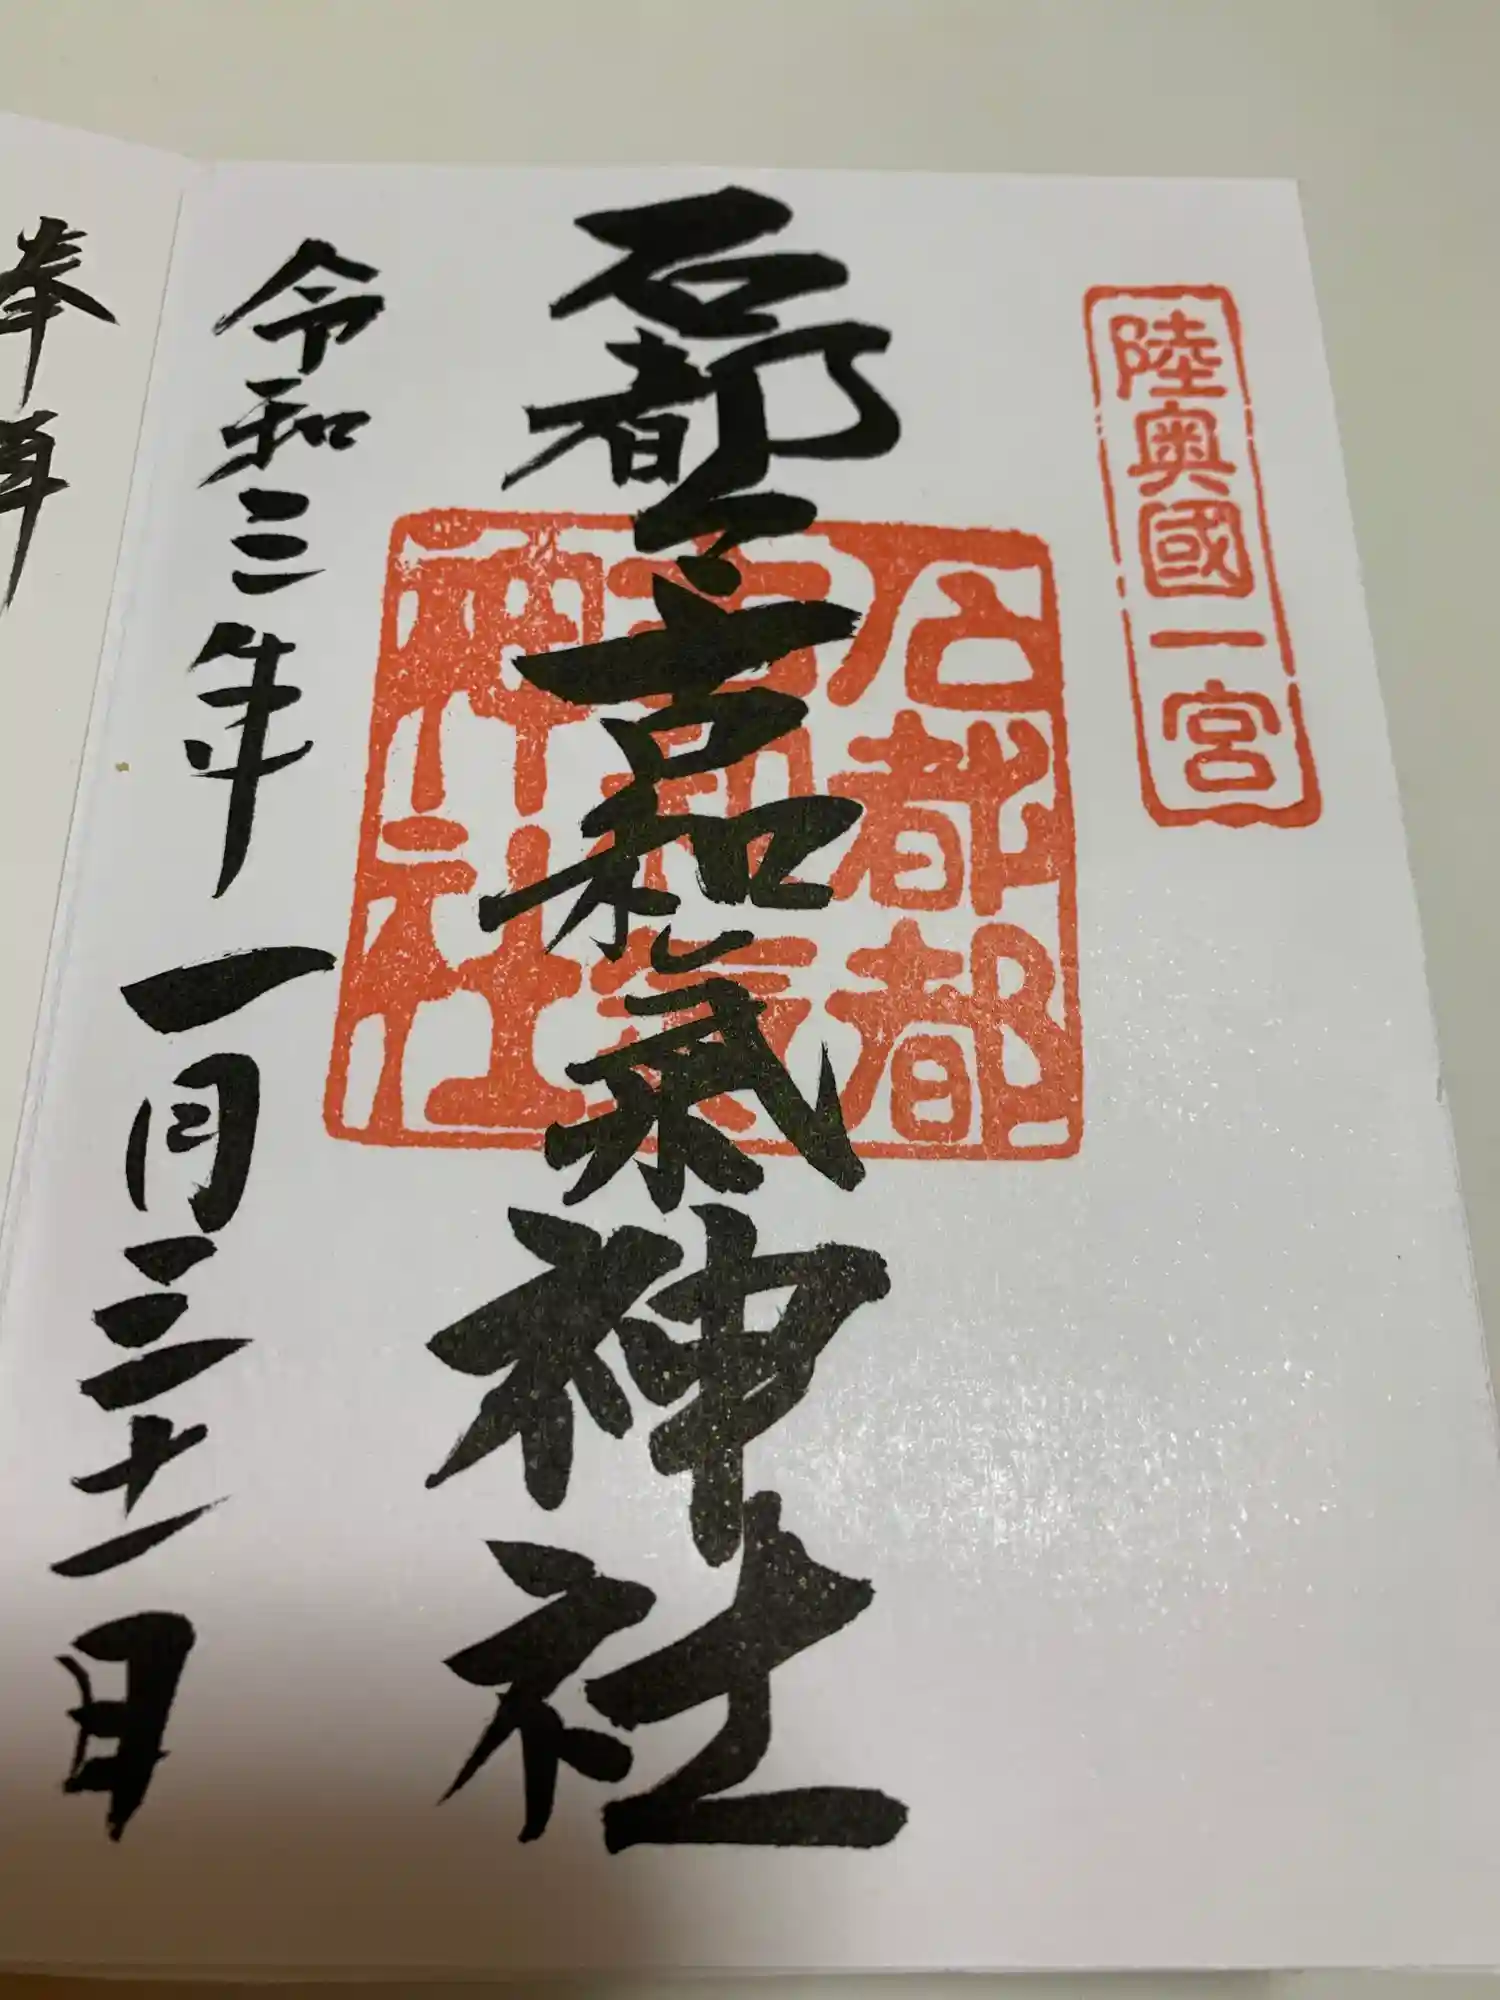 陸奥國一宮
石都々古和氣神社
石都都
古和氣
神社
令和三年一月三十一日
奉拝